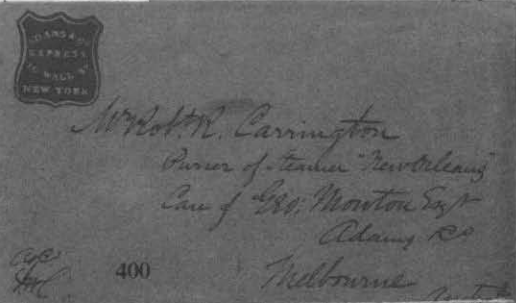 ADAMS & CO
EXPRESS
16 WALL ST
NEW YORK
Mr Robt. R. Carrington
Purser of Steamer "New Orleans"
Care of Geo. Mowton Esqr
Adams & Co
Melbourne
400